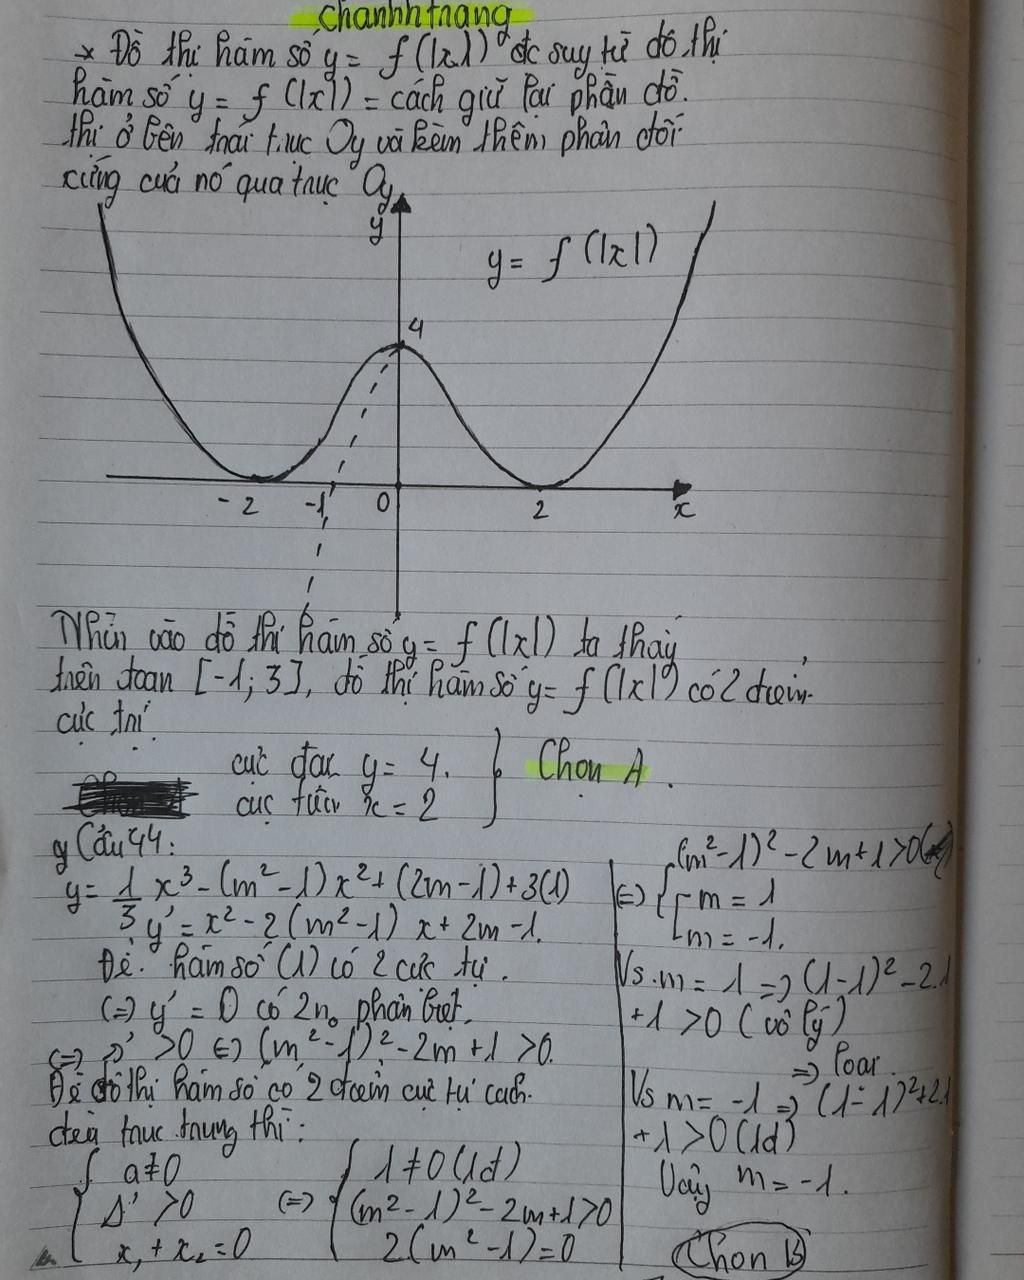 chanhhtrang
* Đồ thị hàm số y = f(|x|) đc suy từ đồ thị
hàm số y = f(|x|) = cách giữ lại phần đồ.
thị ở bên trái trục Oy và kèm thêm phần đối
xứng của nó qua trục Oy
y
y = f(|x|)
4
-2 -1 0 2 x
Nhìn vào đồ thị hàm số y = f(|x|) ta thấy
trên đoạn [-1; 3], đồ thị hàm số y = f(|x|) có 2 điểm
cực trị
cực đại y = 4.
cực tiểu x = 2
Chọn A.
Câu 44:
y = 1/3 x³ - (m² - 1)x² + (2m - 1) + 3 (1)
y' = x² - 2(m² - 1)x + 2m - 1.
Để hàm số (1) có 2 cực tự.
(=) y' = 0 có 2 n₀ phân biệt.
(=) Δ' > 0 (=) (m² - 1)² - 2m + 1 > 0.
Để đồ thị hàm số có 2 điểm cực tự cách
đều trục trung thì:
{ a ≠ 0
Δ' > 0
x₁ + x₂ = 0
(=) { 1 ≠ 0 (lđ)
(m² - 1)² - 2m + 1 > 0
2(m² - 1) = 0
(=) { (m² - 1)² - 2m + 1 > 0
[ m = 1
m = -1.
Vs m = 1 => (1 - 1)² - 2.1
+ 1 > 0 (vô lý)
=> loại.
Vs m = -1 => (1 - 1)² + 2.1
+ 1 > 0 (lđ)
Vậy m = -1.
Chọn B